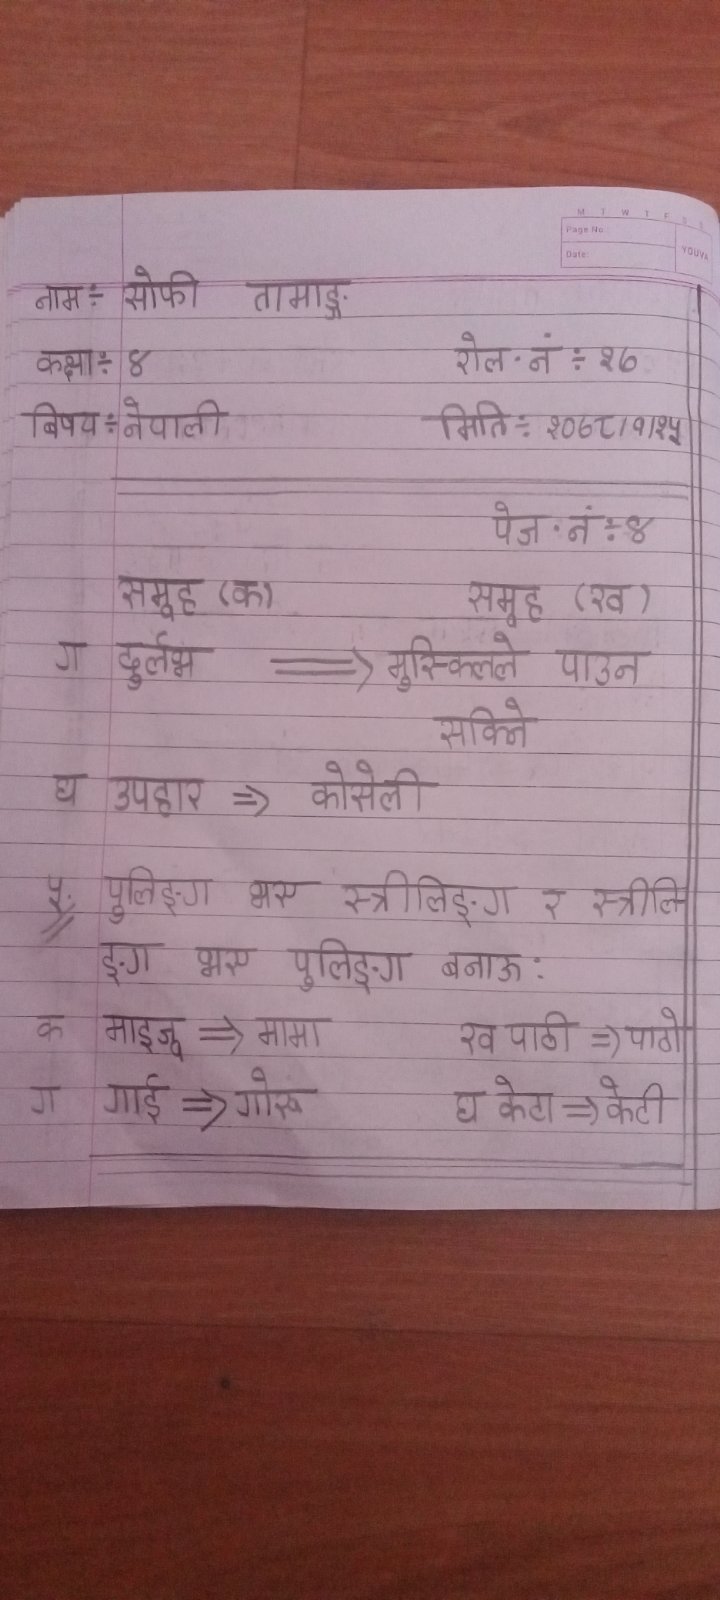 M T W T F S S
Page No
Date:
YOUVA
नाम÷ सोफी तामाङ्ग
कक्षा÷ ४ रोल.नं ÷ २७
बिषय÷ नेपाली मिति÷ २०७८।१।२५
पेज.नं÷४
समूह (क) समूह (ख)
ग दुर्लभ ⟹ मुस्किलले पाउन
सकिने
घ उपहार ⇒ कोसेली
५. पुलिङ्ग भए स्त्रीलिङ्ग र स्त्रीलि
ङ्ग भए पुलिङ्ग बनाऊ:
क माइजू ⇒ मामा ख पाठी ⇒ पाठो
ग गाई ⇒ गोरु घ केटा ⇒ केटी